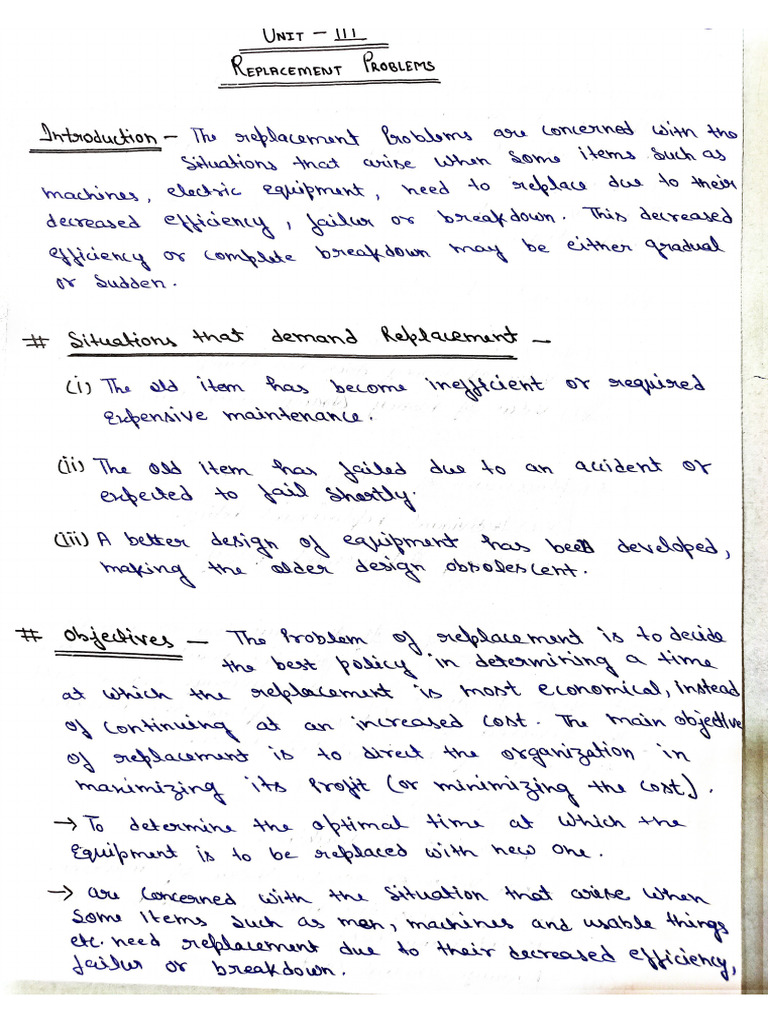 UNIT - III
REPLACEMENT PROBLEMS
Introduction - The replacement Problems are concerned with the
situations that arise when some items such as
machines, electric equipment, need to replace due to their
decreased efficiency, failur or breakdown. This decreased
efficiency or complete breakdown may be either gradual
or sudden.
# Situations that demand Replacement -
(i) The old item has become inefficient or required
expensive maintenance.
(ii) The old item has failed due to an accident or
expected to fail shortly.
(iii) A better design of equipment has been developed,
making the older design obsolescent.
# Objectives - The Problem of replacement is to decide
the best policy in determining a time
at which the replacement is most economical, instead
of continuing at an increased cost. The main objective
of replacement is to direct the organization in
maximizing its Profit (or minimizing the cost).
→ To determine the optimal time at which the
Equipment is to be replaced with new one.
→ are concerned with the situation that arise when
some items such as men, machines and usable things
etc. need replacement due to their decreased efficiency,
failur or breakdown.